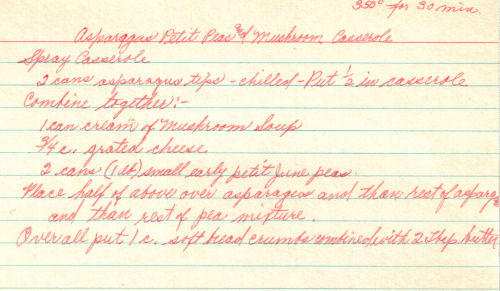 350° for 30 min.
Asparagus Petit Peas and Mushroom Casserole
Spray Casserole
2 cans asparagus tips - chilled - Put 1/2 in casserole
Combine together:-
1 can cream of Mushroom Soup
3/4 c. grated cheese
2 cans (1 lb) small early petit June peas.
Place half of above over asparagus and than rest of asparag
and than rest of pea mixture.
Over all put 1 c. soft bread crumbs combined with 2 tbsp. butter